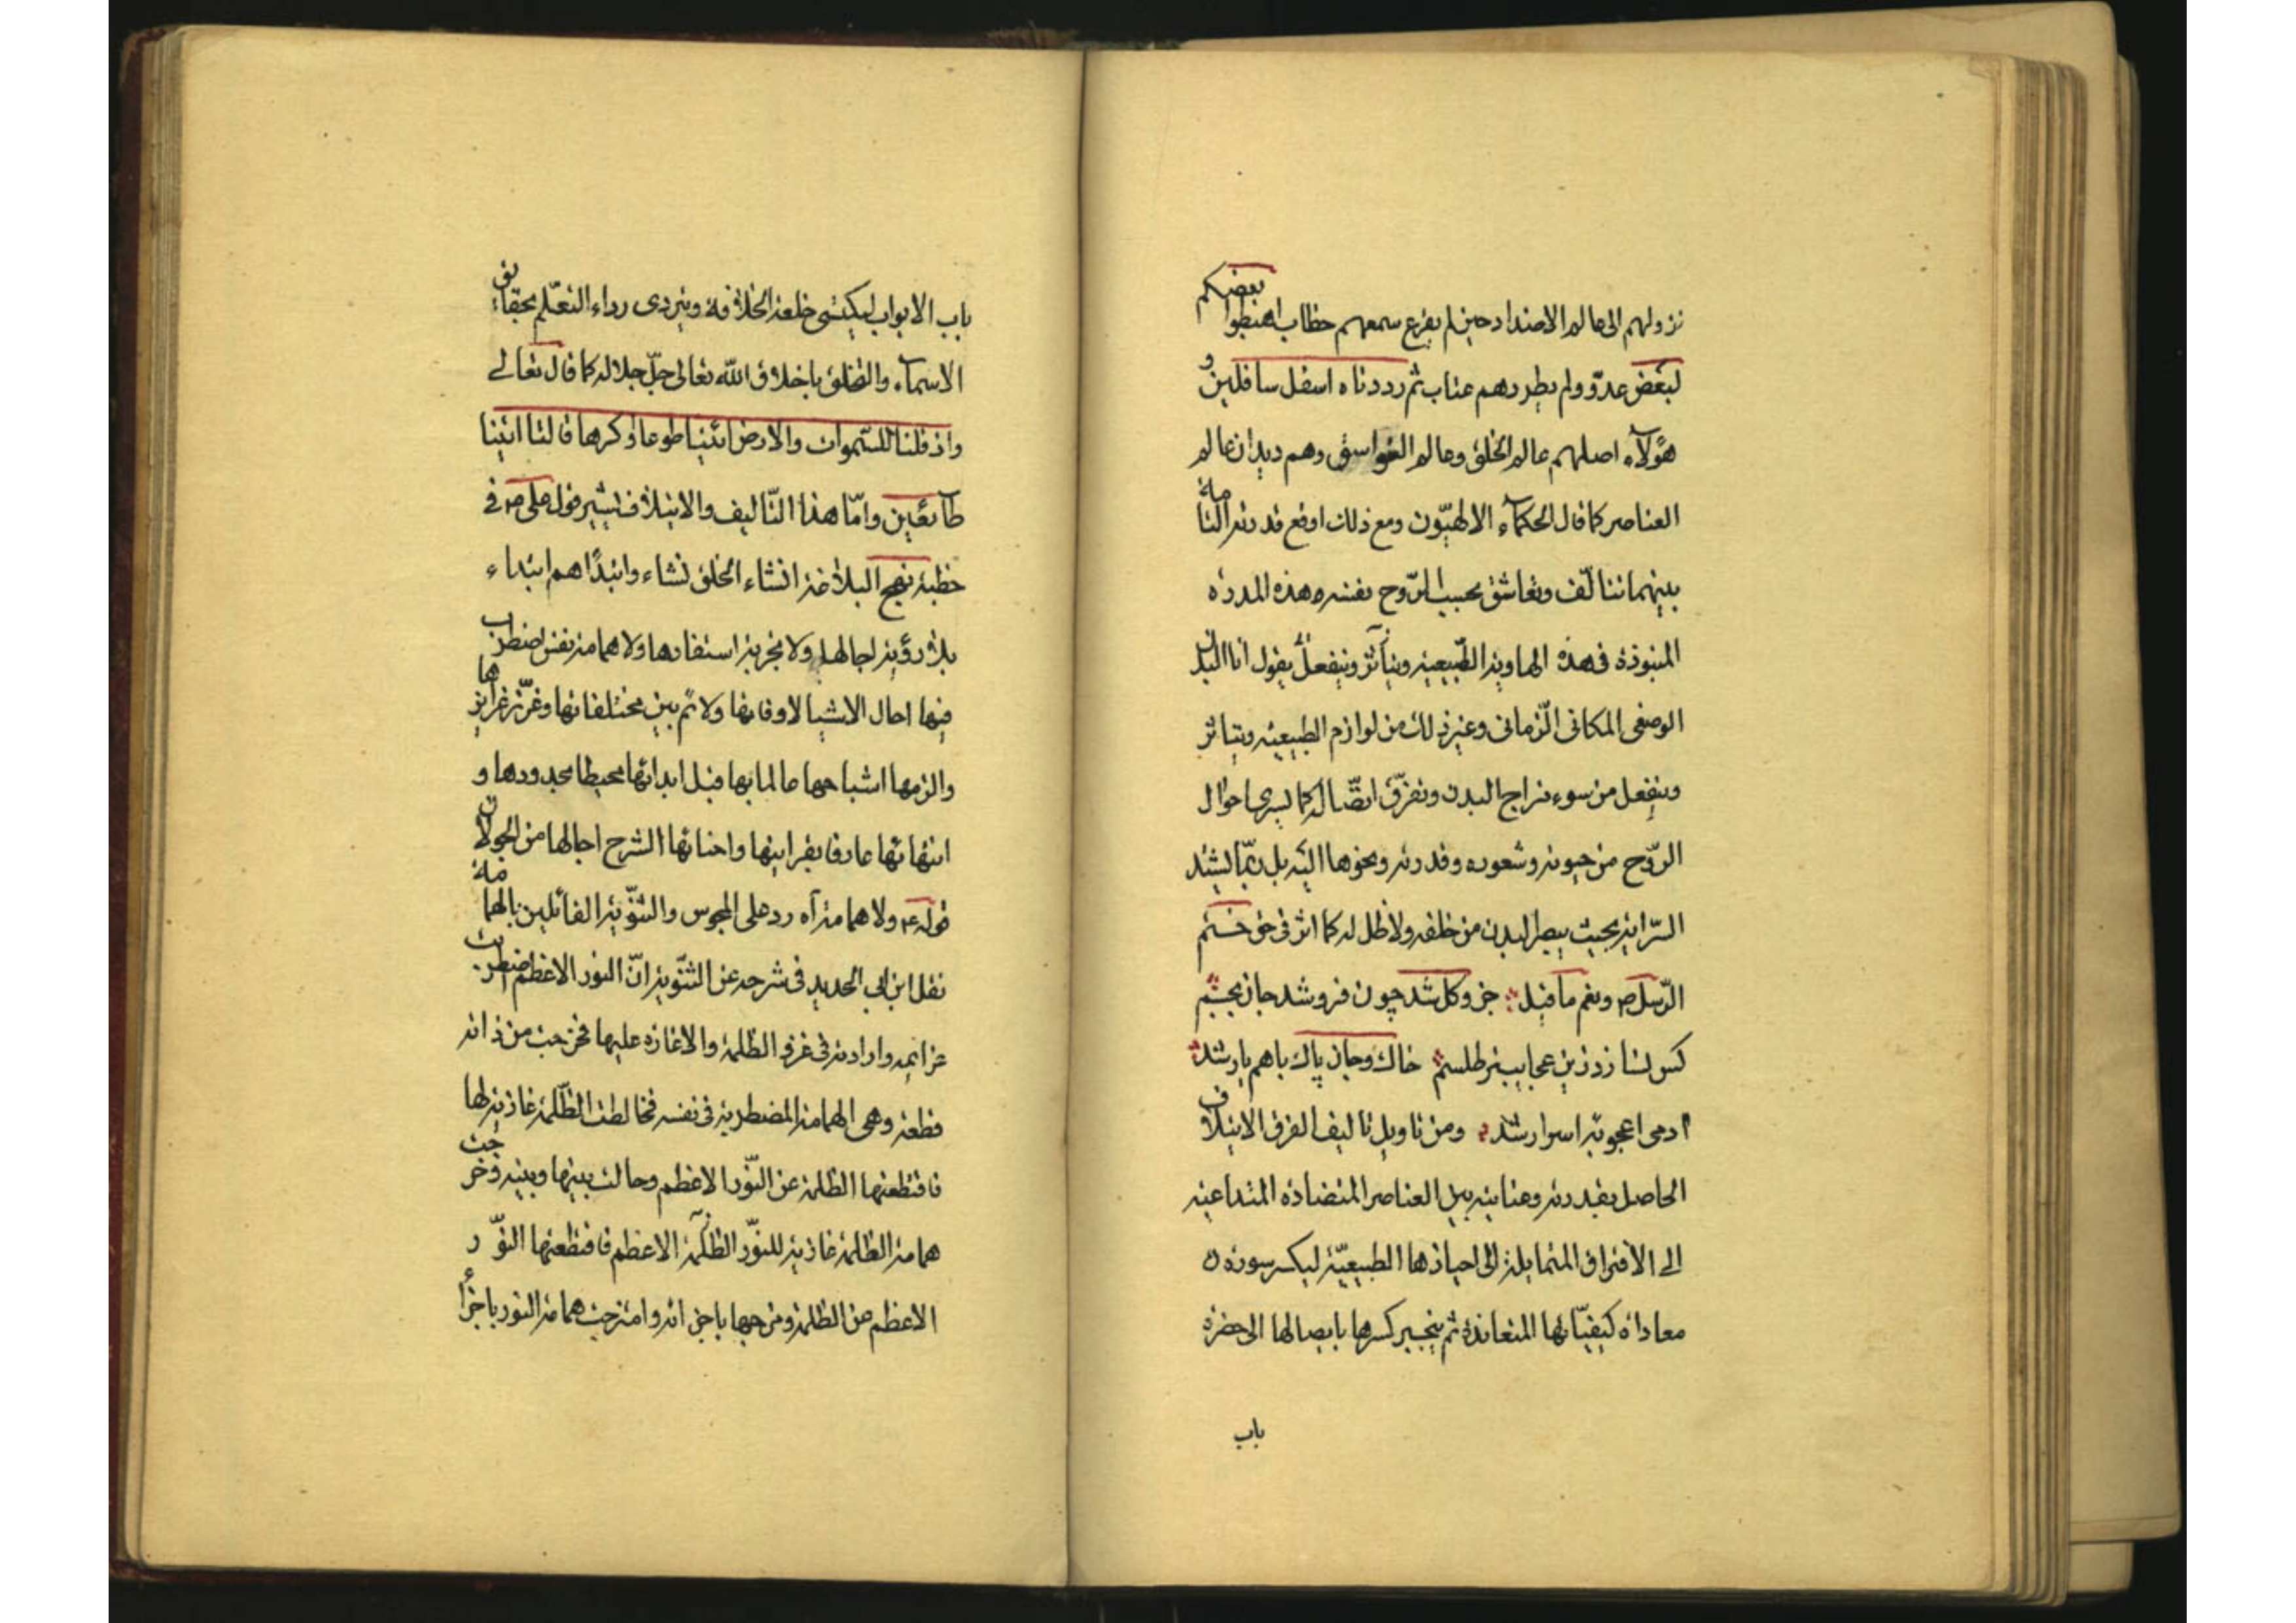 نزولهم الى عالم الاضداد حين لم يقرع سمعهم خطاب اهبطوا بعضكم
لبعض عدوّ ولم يطردهم عتاب ثم رددناه اسفل سافلين و
هؤلآء اصلهم عالم الخلق وعالم الغواسق وهم ديدان عالم
العناصر كما قال الحكمآء الالهيّون ومع ذلك اوقع قدرته التامة
بينهما تتألّف وتعاشق بحيث الروح نفسه وهذه المدرة
المنبوذة فى هذه الهاوية الطّبيعية ويتأثر وينفعل يقول انا البدن
الوضعى المكانى الزمانى وغير ذلك من لوازم الطبيعية ويتاثر
وينفعل من سوء مزاج البدن وتفرّق اتصّاله كما يسرى احوال
الرّوح من حيوته وشعوره وقدرته ونحوها اليه بل ربّما يشتد
السّراية بحيث يبصر البدن من خلفه ولا ظل له كما اثر فى حق ختم
الرّسل ص ونعم ما قيل جزو كل شد چون فرو شد جان بجسم
كس نسازد زين عجايب تر طلسم خاك وجان پاك با هم يار شد
ادمى اعجوبه اسرار شد ومن تاويل تاليف الفرق الايتلاف
الحاصل بقدرته وعنايته بين العناصر المتضادة المتداعيه
الى الافتراق المتمايلة الى احيازها الطبيعيّة ليكسر سورة
معاداة كيفيّاتها المتعاندة ثم ينجبر كسرها بايصالها الى حضرة
باب
باب الابواب ليكتسى خلعة الخلافة ويتردى رداء التعلّم بحقائق
الاسمآء والتخلق باخلاق الله تعالى جلّ جلاله كما قال تعالى
واذ قلنا للسّموات والارض ائتيا طوعا او كرها قالتا اتينا
طآئعين وامّا هذا التّاليف والايتلاف يشير قول على ع فى
خطبة نهج البلاغة انشاء الخلق نشاء وابتدأهم ابتداء
بلا رؤية اجالها ولا تجربة استفادها ولا همامة نفس اضطرب
فيها احال الاشيا لاوقاتها ولائم بين مختلفاتها وغرّز غرايزها
والزمها اشباحها عالما بها قبل ابدائها محيطا بحدودها و
انتهائها عارفا بقراينها واحنائها الشرح اجالها من الجولان
قوله ع ولا همامة آه رد على المجوس والثنّوية القائلين بالهمامة
نقل ابن ابى الحديد فى شرحه عن الثنّوية انّ النور الاعظم اضطربت
عزائمه وارادته فى غزو الظلمة والاغارة عليها فخرجت من ذاته
قطعة وهى الهمامة المضطربة فى نفسه فخالطت الظّلمة غازية لها
فاقتطعتها الظلمة عن النوّر الاعظم وحالت بينها وبينه وخرجت
همامة الظلمة غازية للنوّر الاعظم فاقتطعتها النوّر
الاعظم من الظلمة ومزجها باجزائه وامتزجت همامة النور باجزاء